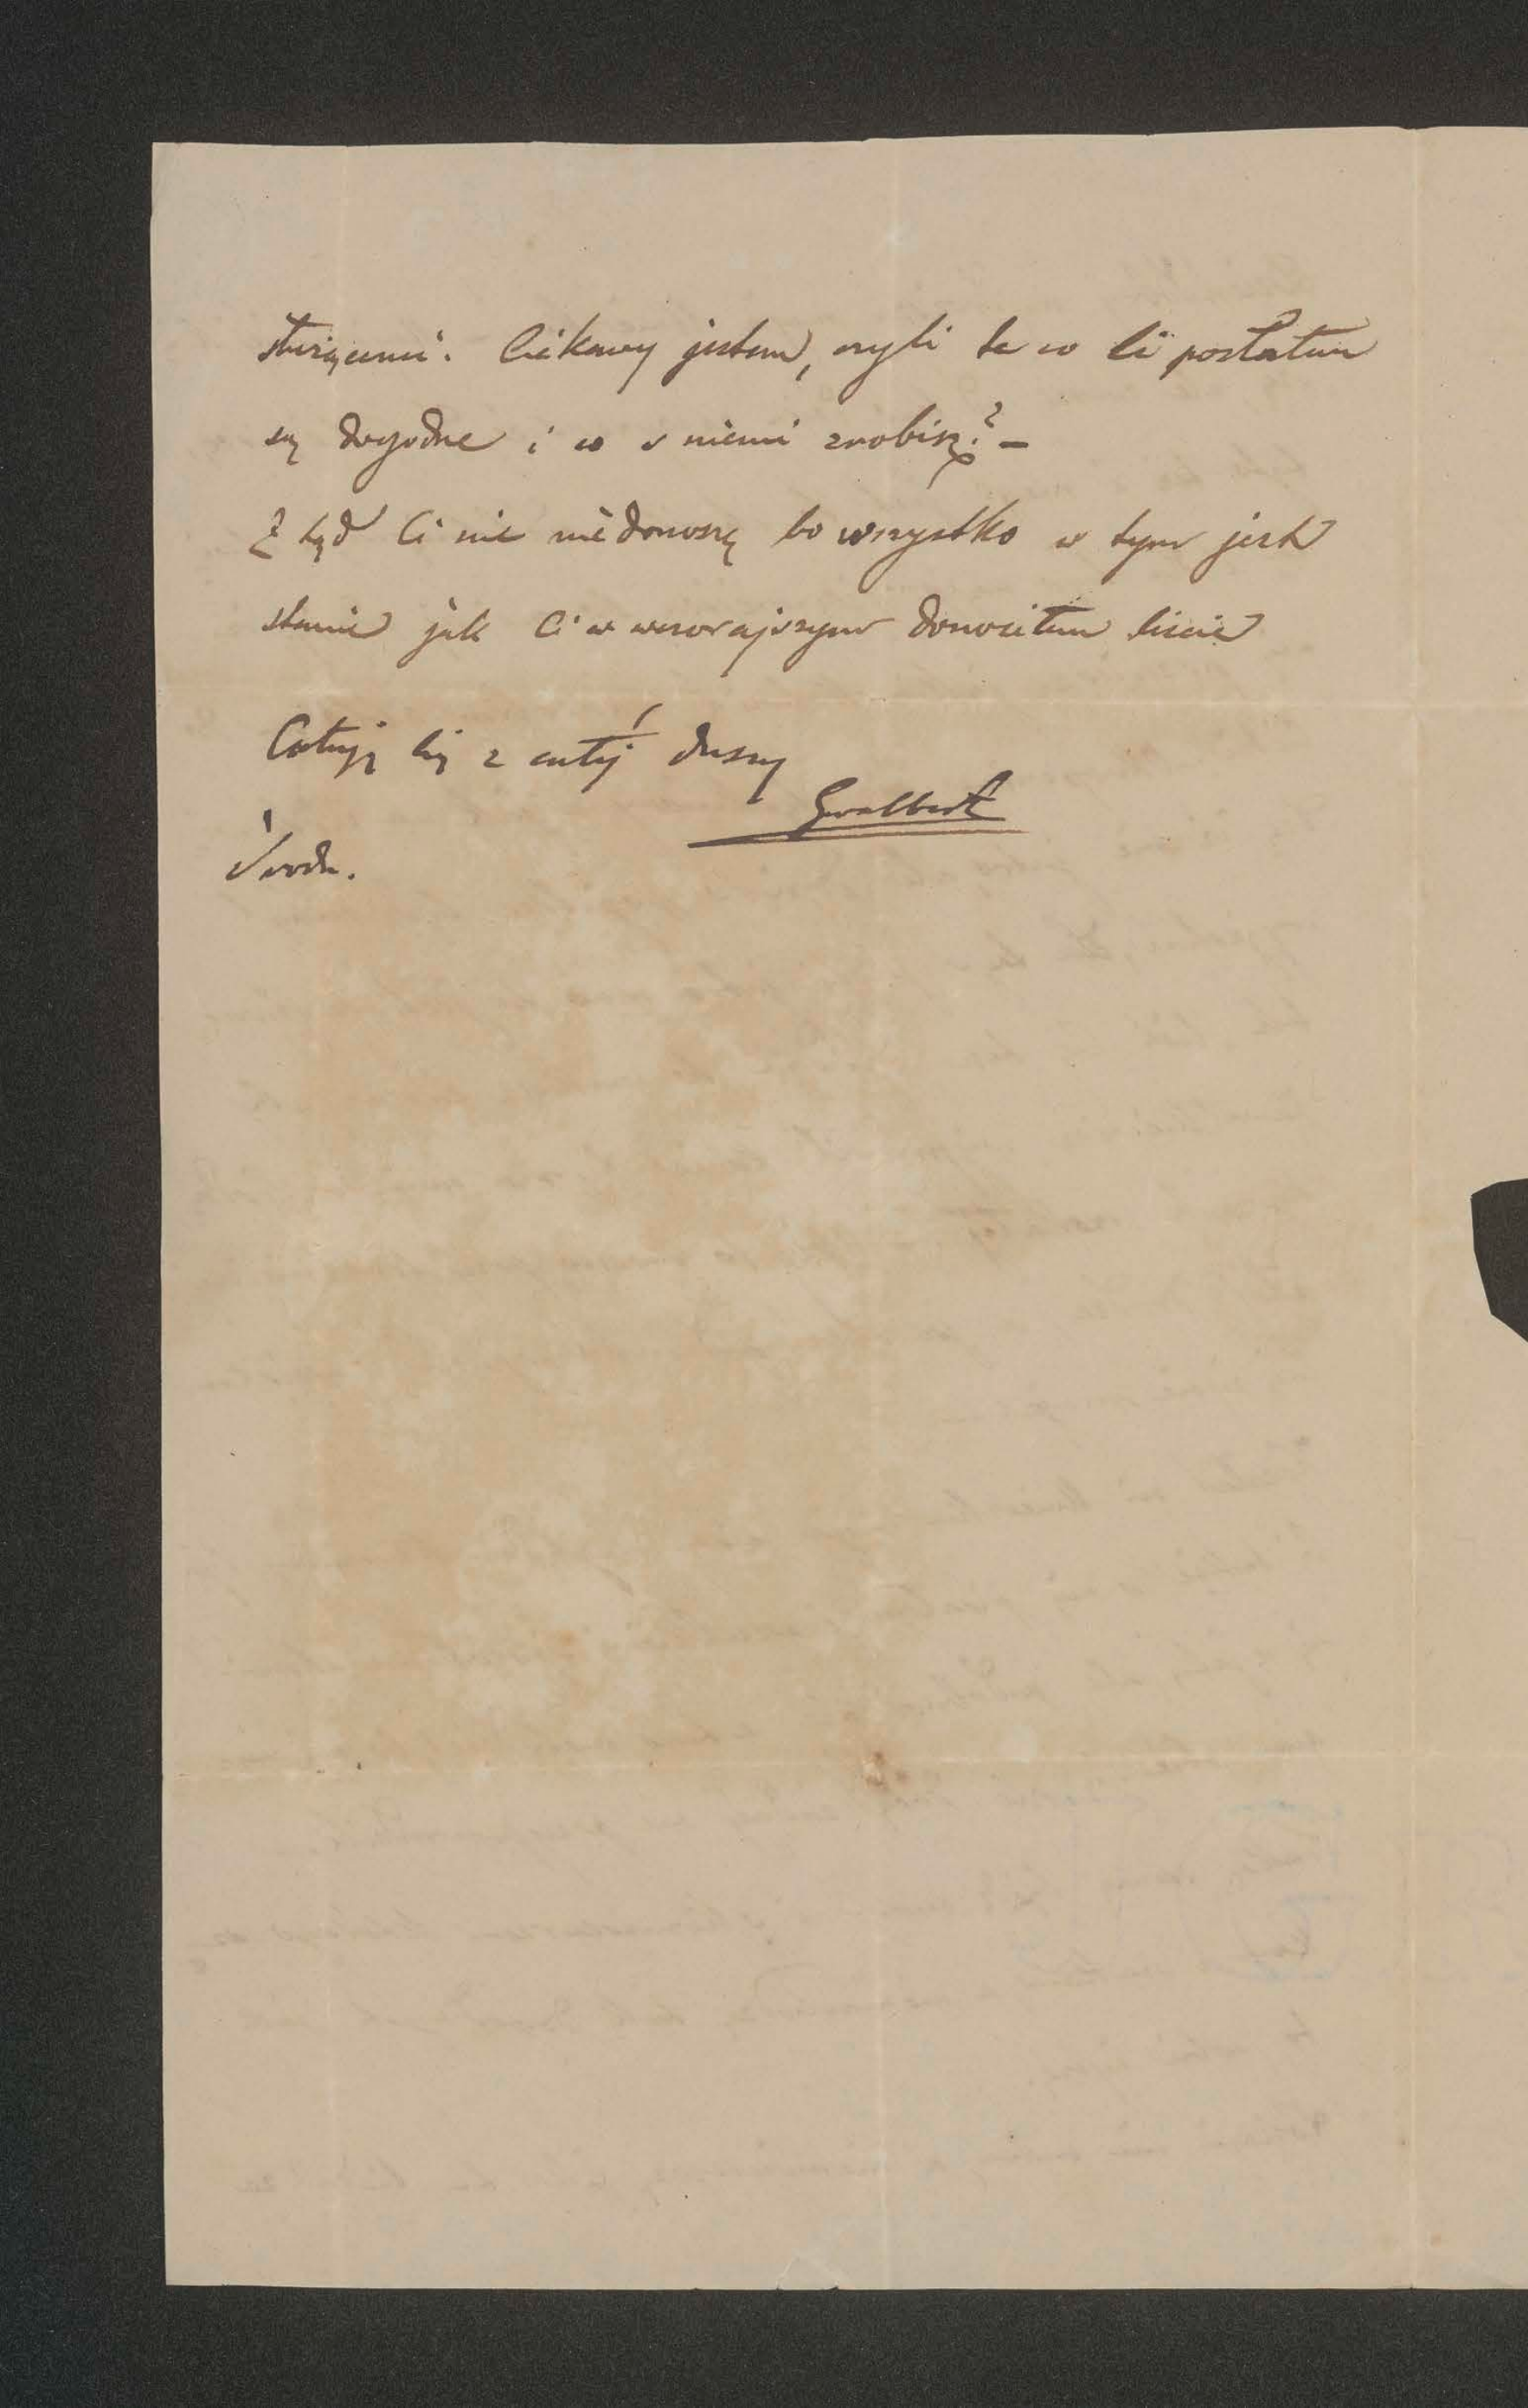 Ciekawy jestem, czyli te co Ci posłałem
są dogodne i co z niemi zrobisz? –
Z tąd Ci nic niedonoszę bo wszystko w tym jest
stanie jak Ci w wczorajszym donosiłem liście
Całuję Cię z całéj duszy
Gwalbert
Środa.